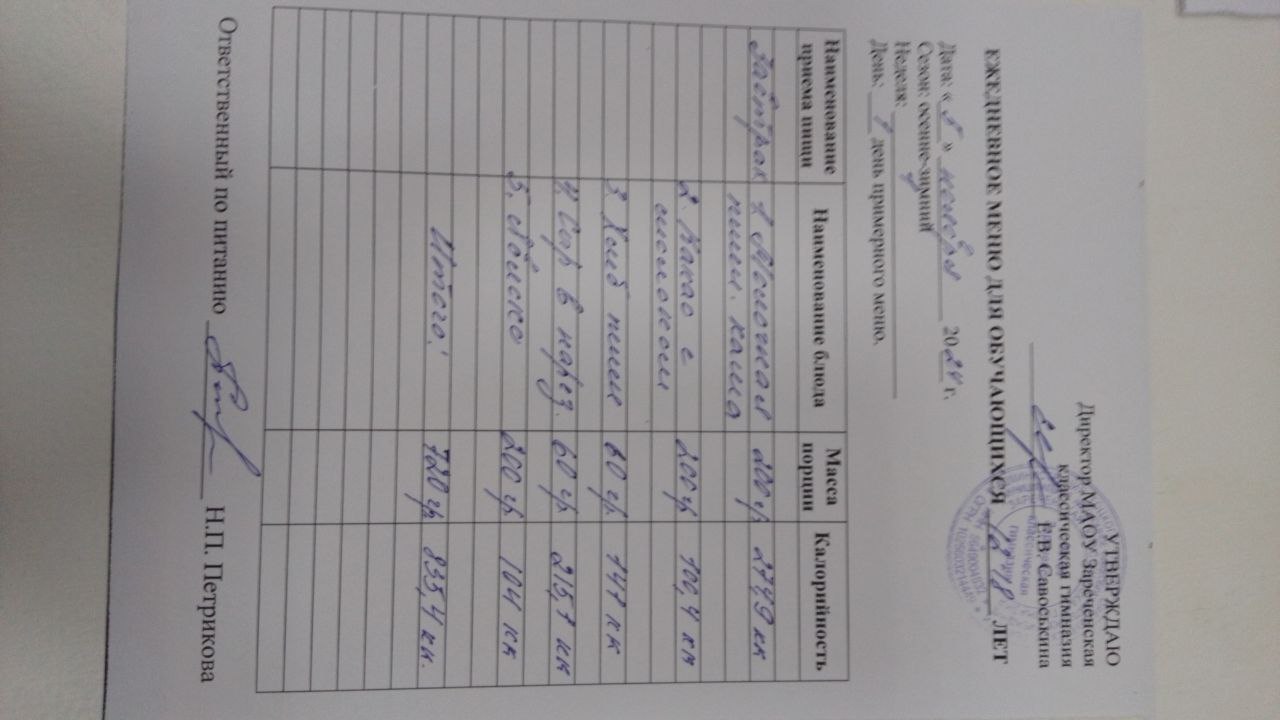 УТВЕРЖДАЮ
Директор МАОУ Зареченская
классическая гимназия
Е.В. Савоськина
ЕЖЕДНЕВНОЕ МЕНЮ ДЛЯ ОБУЧАЮЩИХСЯ 12-18 ЛЕТ
Дата: « 5 » ноября 2024 г.
Сезон: осенне-зимний
Неделя:
День: 1 день примерного меню.
Наименование приема пищи Наименование блюда Масса порции Калорийность
Завтрак 1. Молочная 200 гр 274,9 кк
пшен. каша
2. Какао с 200 гр 100,4 кк
молоком
3. Хлеб пшен 60 гр. 141 к
4. Сыр в нарез. 60 гр. 215,7 кк
5. яблоко 200 гр. 104 кк
Итого: 720 гр. 835,4 кк.
Ответственный по питанию Н.П. Петрикова